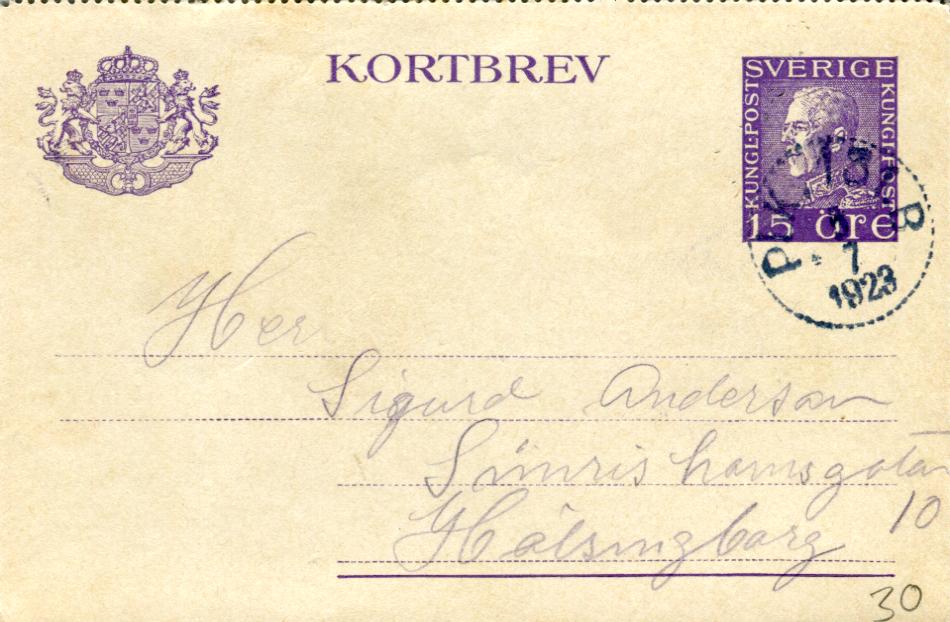 KORTBREV
SVERIGE
KUNGL·POST
KUNGL·POST
15 öre
PKXP 13 B
3
7
1923
Herr
Sigurd Anderson
Simrishamsgatan
10
Hälsingborg
30